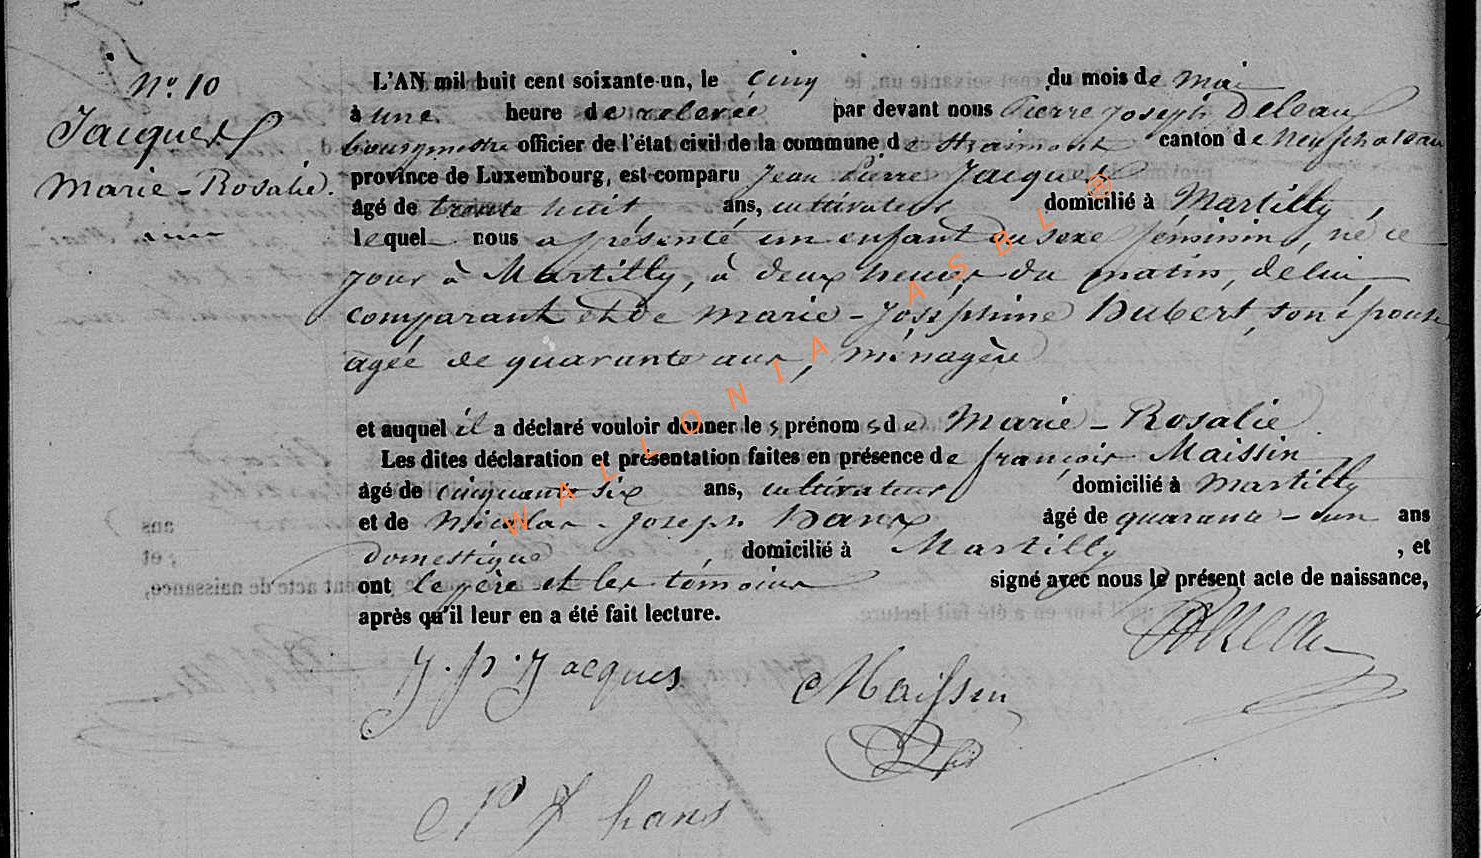 N° 10
Jacques
Marie-Rosalie.
L'AN mil huit cent soixante-un, le cinq du mois de mai
à une heure de relevée par devant nous Pierre Joseph Deleau
bourgmestre officier de l'état civil de la commune de Straimont canton de Neufchateau
province de Luxembourg, est comparu Jean Pierre Jacques
âgé de trente huit, ans, cultivateur domicilié à Martilly,
lequel nous a présenté un enfant du sexe féminin, né ce
jour à Martilly, à deux heures du matin, de lui
comparant et de Marie-Joséphine Hubert, son épouse
agée de quarante ans, ménagère
et auquel il a déclaré vouloir donner les prénoms de Marie-Rosalie.
Les dites déclaration et présentation faites en présence de françois Maissin
âgé de cinquante six ans, cultivateur domicilié à Martilly
et de Nicolas-Joseph Hans âgé de quarante-un ans
domestique, domicilié à Martilly, et
ont le père et les témoins signé avec nous le présent acte de naissance,
après qu'il leur en a été fait lecture.
J. p. Jacques Maissin
hans
WALLONIA ASBL ®